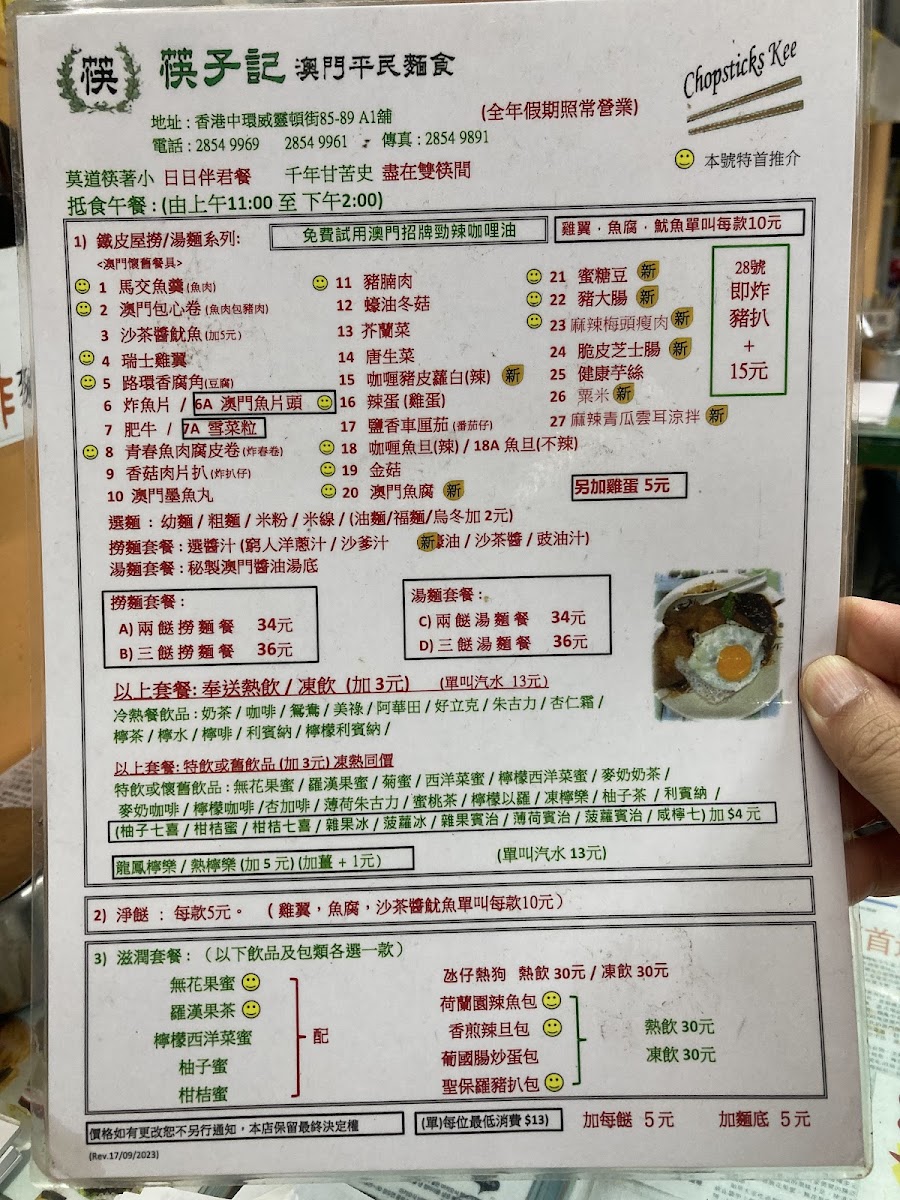 筷 筷子記 澳門平民麵食
Chopsticks Kee
地址 : 香港中環威靈頓街85-89 A1舖
(全年假期照常營業)
電話 : 2854 9969 2854 9961 傳真 : 2854 9891
本號特首推介
莫道筷著小 日日伴君餐 千年甘苦史 盡在雙筷間
抵食午餐 : (由上午11:00 至 下午2:00)
1) 鐵皮屋撈/湯麵系列:
免費試用澳門招牌勁辣咖哩油
雞翼 . 魚腐 . 魷魚單叫每款10元
<澳門懷舊餐具>
1 馬交魚羹 (魚肉)
2 澳門包心卷 (魚肉包豬肉)
3 沙茶醬魷魚 (加5元)
4 瑞士雞翼
5 路環香腐角(豆腐)
6 炸魚片 / 6A 澳門魚片頭
7 肥牛 / 7A 雪菜粒
8 青春魚肉腐皮卷 (炸春卷)
9 香菇肉片扒 (炸扒仔)
10 澳門墨魚丸
11 豬腩肉
12 蠔油冬菇
13 芥蘭菜
14 唐生菜
15 咖喱豬皮蘿白(辣) 新
16 辣蛋 (雞蛋)
17 鹽香車厘茄 (番茄仔)
18 咖喱魚旦(辣) / 18A 魚旦(不辣)
19 金菇
20 澳門魚腐 新
21 蜜糖豆 新
22 豬大腸 新
23 麻辣梅頭瘦肉 新
24 脆皮芝士腸 新
25 健康芋絲
26 粟米 新
27 麻辣青瓜雲耳涼拌 新
28號
即炸
豬扒
+
15元
另加雞蛋 5元
選麵 : 幼麵 / 粗麵 / 米粉 / 米線 / (油麵/福麵/烏冬加 2元)
撈麵套餐 : 選醬汁 (窮人洋蔥汁 / 沙爹汁 新 油 / 沙茶醬 / 豉油汁)
湯麵套餐 : 秘製澳門醬油湯底
撈麵套餐 :
A) 兩餸撈麵餐 34元
B) 三餸撈麵餐 36元
湯麵套餐 :
C) 兩餸湯麵餐 34元
D) 三餸湯麵餐 36元
以上套餐: 奉送熱飲 / 凍飲 (加 3元) (單叫汽水 13元)
冷熱餐飲品 : 奶茶 / 咖啡 / 鴛鴦 / 美祿 / 阿華田 / 好立克 / 朱古力 / 杏仁霜 /
檸茶 / 檸水 / 檸啡 / 利賓納 / 檸檬利賓納 /
以上套餐: 特飲或舊飲品 (加 3元) 凍熱同價
特飲或懷舊飲品 : 無花果蜜 / 羅漢果蜜 / 菊蜜 / 西洋菜蜜 / 檸檬西洋菜蜜 / 麥奶奶茶 /
麥奶咖啡 / 檸檬咖啡 /杏加啡 / 薄荷朱古力 / 蜜桃茶 / 檸檬以羅 / 凍檸樂 / 柚子茶 / 利賓納 /
(柚子七喜 / 柑桔蜜 / 柑桔七喜 / 雜果冰 / 菠蘿冰 / 雜果賓治 / 薄荷賓治 / 菠蘿賓治 / 咸檸七) 加 $4 元
龍鳳檸樂 / 熱檸樂 (加 5 元) (加薑 + 1元)
(單叫汽水 13元)
2) 淨餸 : 每款5元。 ( 雞翼，魚腐，沙茶醬魷魚單叫每款10元 )
3) 滋潤套餐 : (以下飲品及包類各選一款)
無花果蜜
羅漢果茶
檸檬西洋菜蜜
柚子蜜
柑桔蜜
配
氹仔熱狗 熱飲 30元 / 凍飲 30元
荷蘭園辣魚包
香煎辣旦包
葡國腸炒蛋包
聖保羅豬扒包
熱飲 30元
凍飲 30元
價格如有更改恕不另行通知，本店保留最終決定權
(單)每位最低消費 $13)
加每餸 5 元
加麵底 5 元
(Rev.17/09/2023)